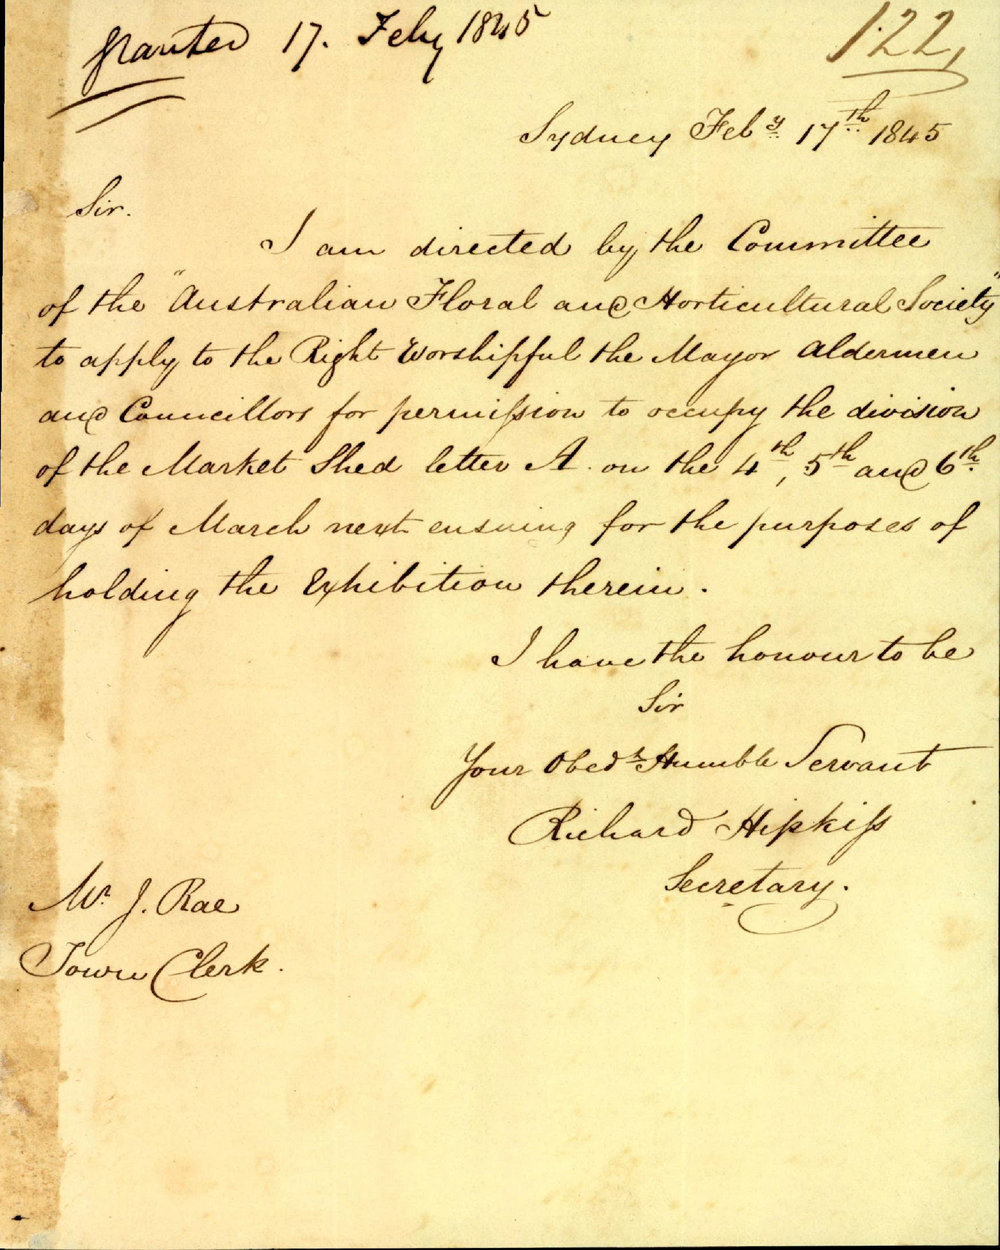 granted 17. Feby 1845
122,
Sydney Feby 17th 1845
Sir.
I am directed by the Committee
of the "Australian Floral and Horticultural Society"
to apply to the Right Worshipful the Mayor Aldermen
and Councillors for permission to occupy the division
of the Market Shed letter A. on the 4th, 5th and 6th
days of March next ensuing for the purposes of
holding the Exhibition therein.
I have the honour to be
Sir
Your Obedt Humble Servant
Richard Hipkiss
Secretary.
Mr. J. Rae
Town Clerk.